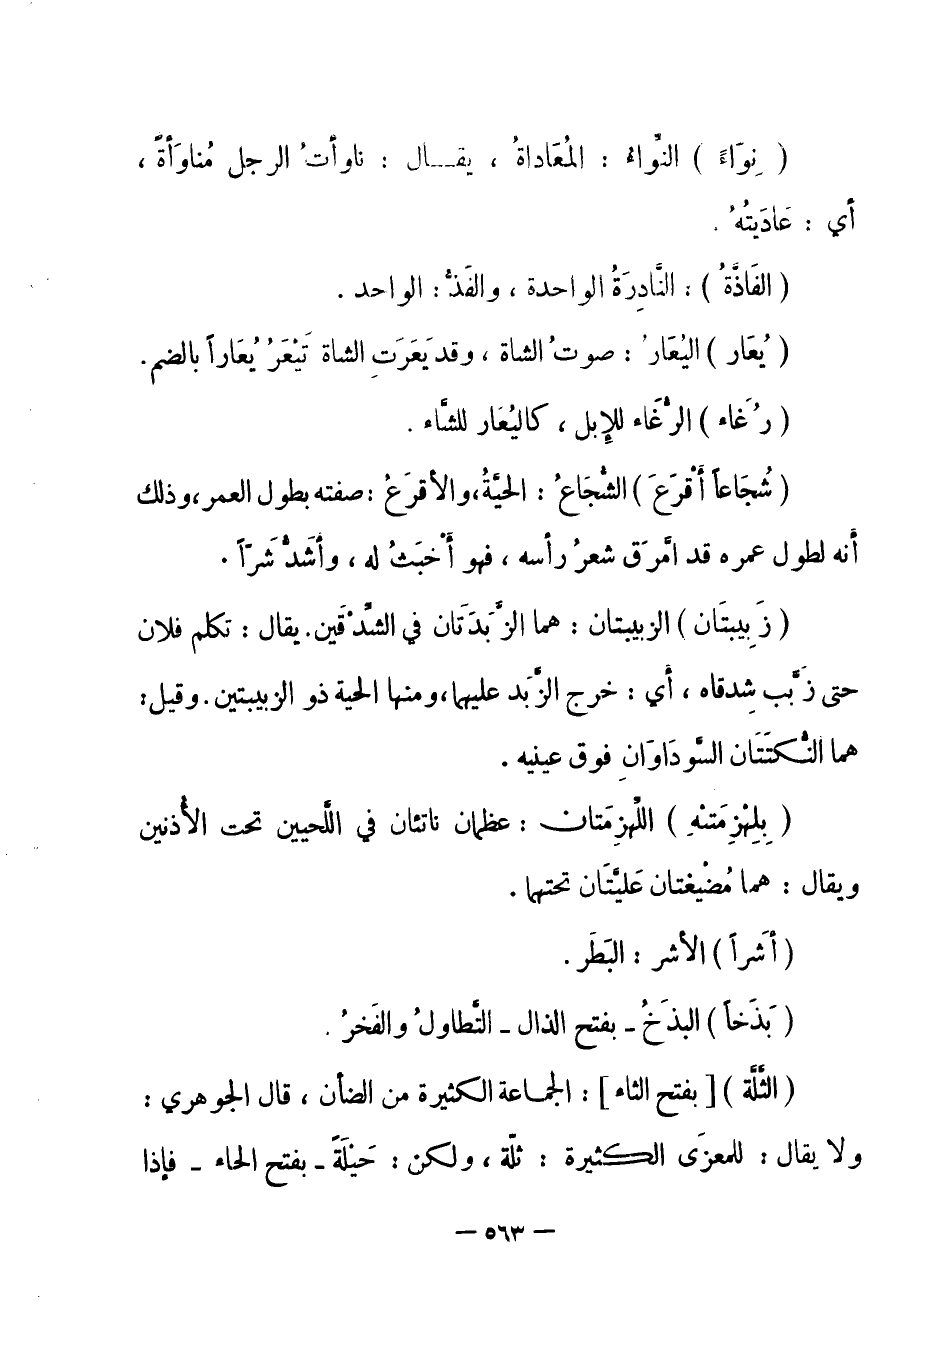 ( نِوَاءً ) النِّواءُ : المُعَاداةُ ، يقـــال : ناوأتُ الرجل مُناوَأةً ،
أي : عَادَيتُهُ .
( الفَاذَّةُ ) : النَّادِرَةُ الواحدة ، والفَذُّ : الواحد .
( يُعَار ) اليُعَارُ : صوتُ الشاة ، وقد يَعَرَتِ الشاة تَيْعَرُ يُعَاراً بالضم .
( رُغَاء ) الرُّغَاء للإِبل ، كاليُعَار للشَّاء .
( شُجَاعاً أَقْرَعَ ) الشُّجَاعُ : الحيَّةُ ، والأقرَعُ : صفته بطول العمر ، وذلك
أنه لطول عمره قد امَّرَق شعرُ رأسه ، فهو أَخبَثُ له ، وأشَدُّ شَرّاً .
( زَبِيبتَان ) الزبيبتان : هما الزَّبَدَتَان في الشِّدْقَين . يقال : تكلم فلان
حتى زَبَّب شِدقاه ، أي : خرج الزَّبَد عليها ، ومنها الحية ذو الزبيبتين . وقيل :
هما النُّـكتَتَان السَّودَاوَانِ فوق عينيه .
( بِلِهْزِمَتَيْهِ ) اللِّهزِمَتان : عظمان ناتئان في اللَّحيين تحت الأُذنين
ويقال : هما مُضْيغتان عَليَّتَان تحتها .
( أَشَراً ) الأشر : البَطَر .
( بَذَخاً ) البذَخُ ـ بفتح الذال ـ التَّطاولُ والفَخرُ .
( الثَّلَّة ) [ بفتح الثاء ] : الجماعة الكثيرة من الضأن ، قال الجوهري :
ولا يقال : للمعزَى الكثيرة : ثلّة ، ولكن : حَيْلَةً ـ بفتح الحاء ـ فإذا
— ٥٦٣ —